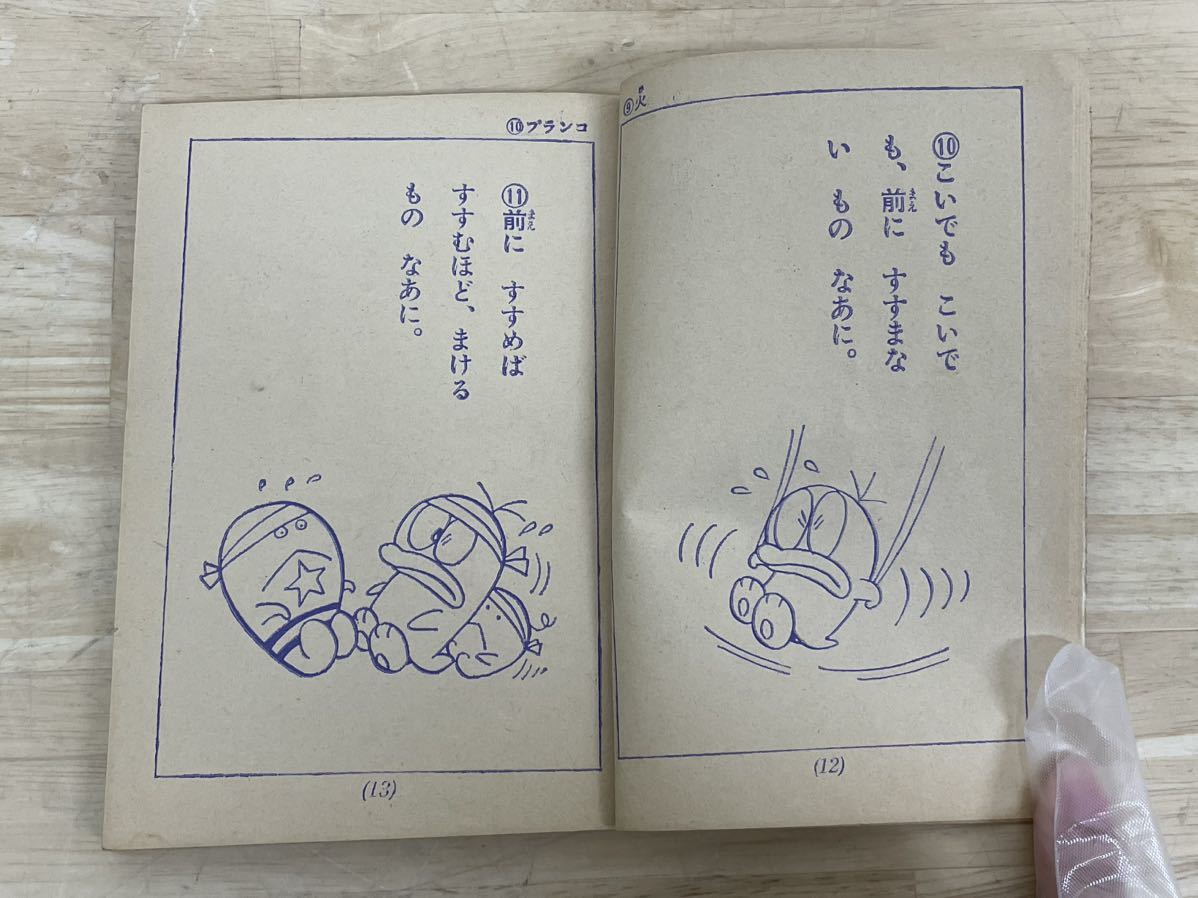 ⑨火
⑩こいでも こいで
も、前に すすまな
い もの なあに。
(12)
⑩ブランコ
⑪前に すすめば
すすむほど、まける
もの なあに。
(13)